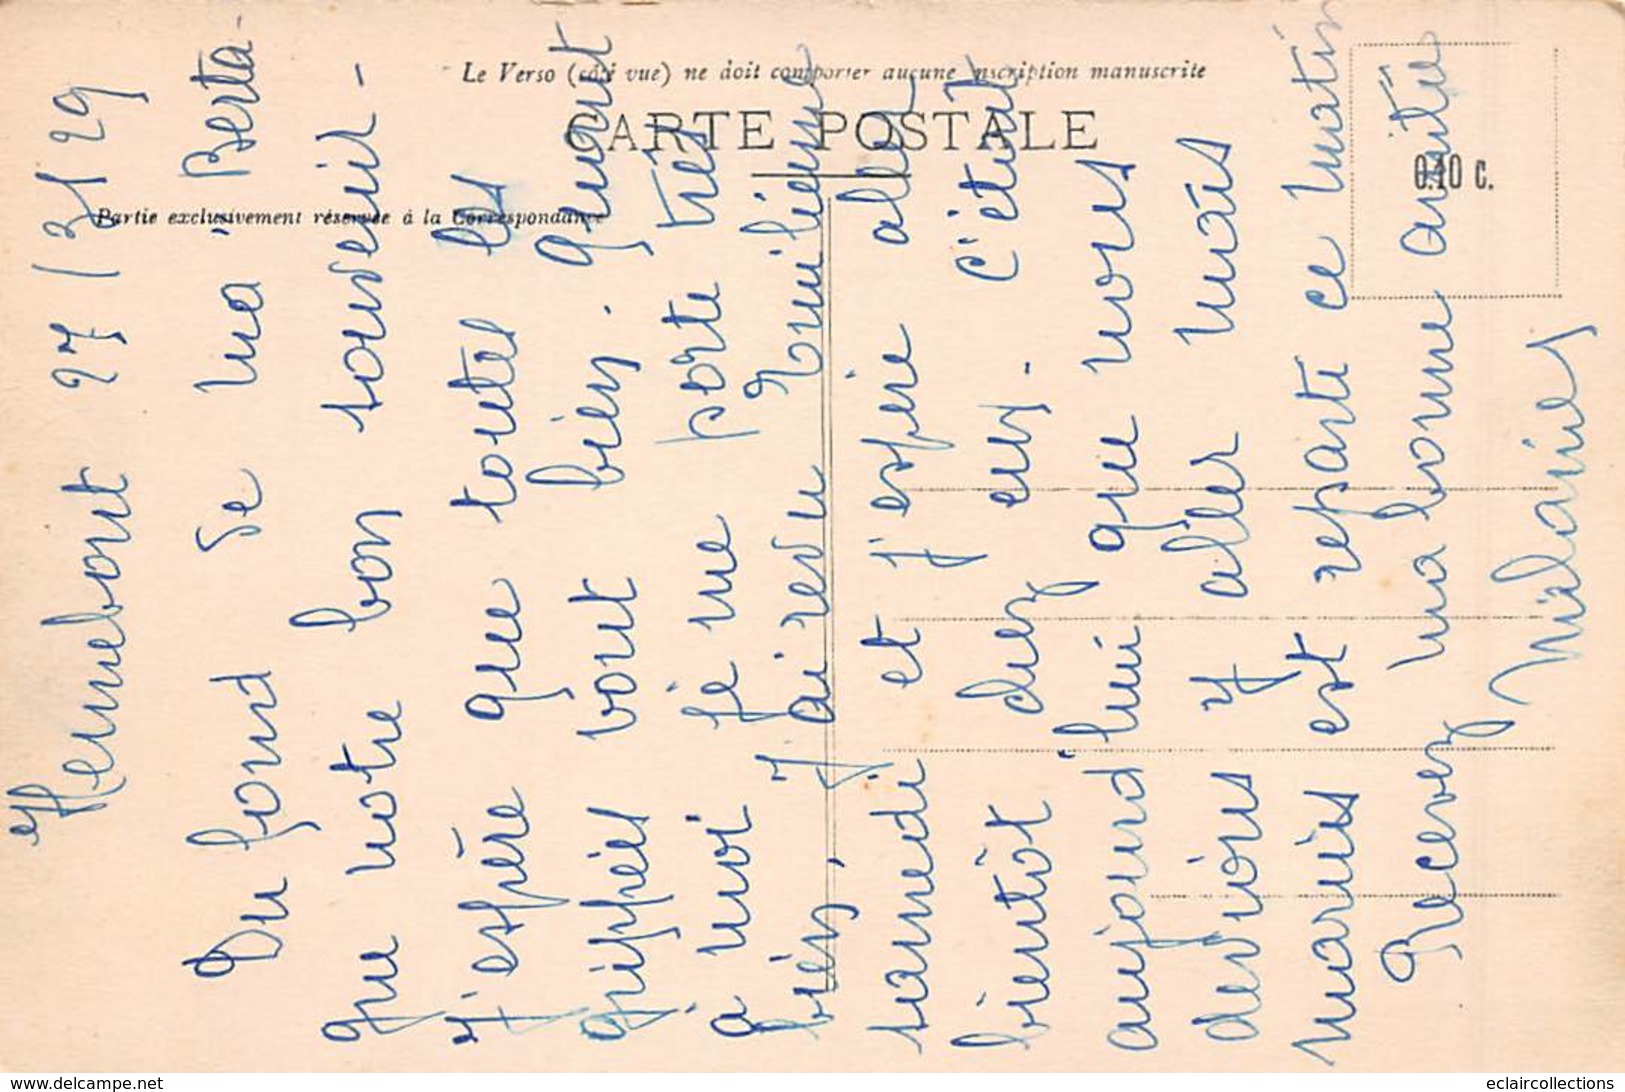 Le Verso (côté vue) ne doit comporter aucune inscription manuscrite
CARTE POSTALE
Partie exclusivement réservée à la Correspondance
0.10 c.
Hennebont 27/3/29
Du fond de ma "Berta"
que notre bon souvenir -
J'espère que toutes les
grippées vont bien. Quant
à moi je me porte très
bien, J'ai revu Emilienne
samedi et j'espère aller
bientôt chez eux. C'était
aujourd'hui que nous
devions y aller mais
marius est reparti ce matin
Recevez ma bonne amitié
www.delcampe.net
eclaircollections